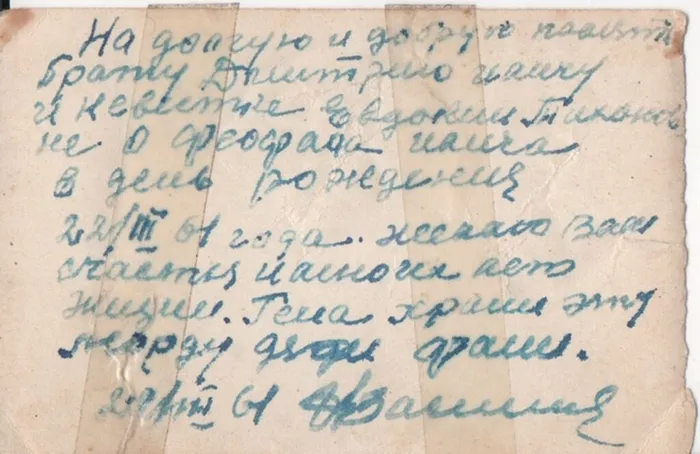 На долгую и добрую память
брату Дмитрию иличу
и невестке Евдокии Тихонов
не о Феофана илича
в день рождения
22/III 61 года. желаю Вам
счастья и многих лет
жизни. Гена храни эту
морду дяди
22/III 61